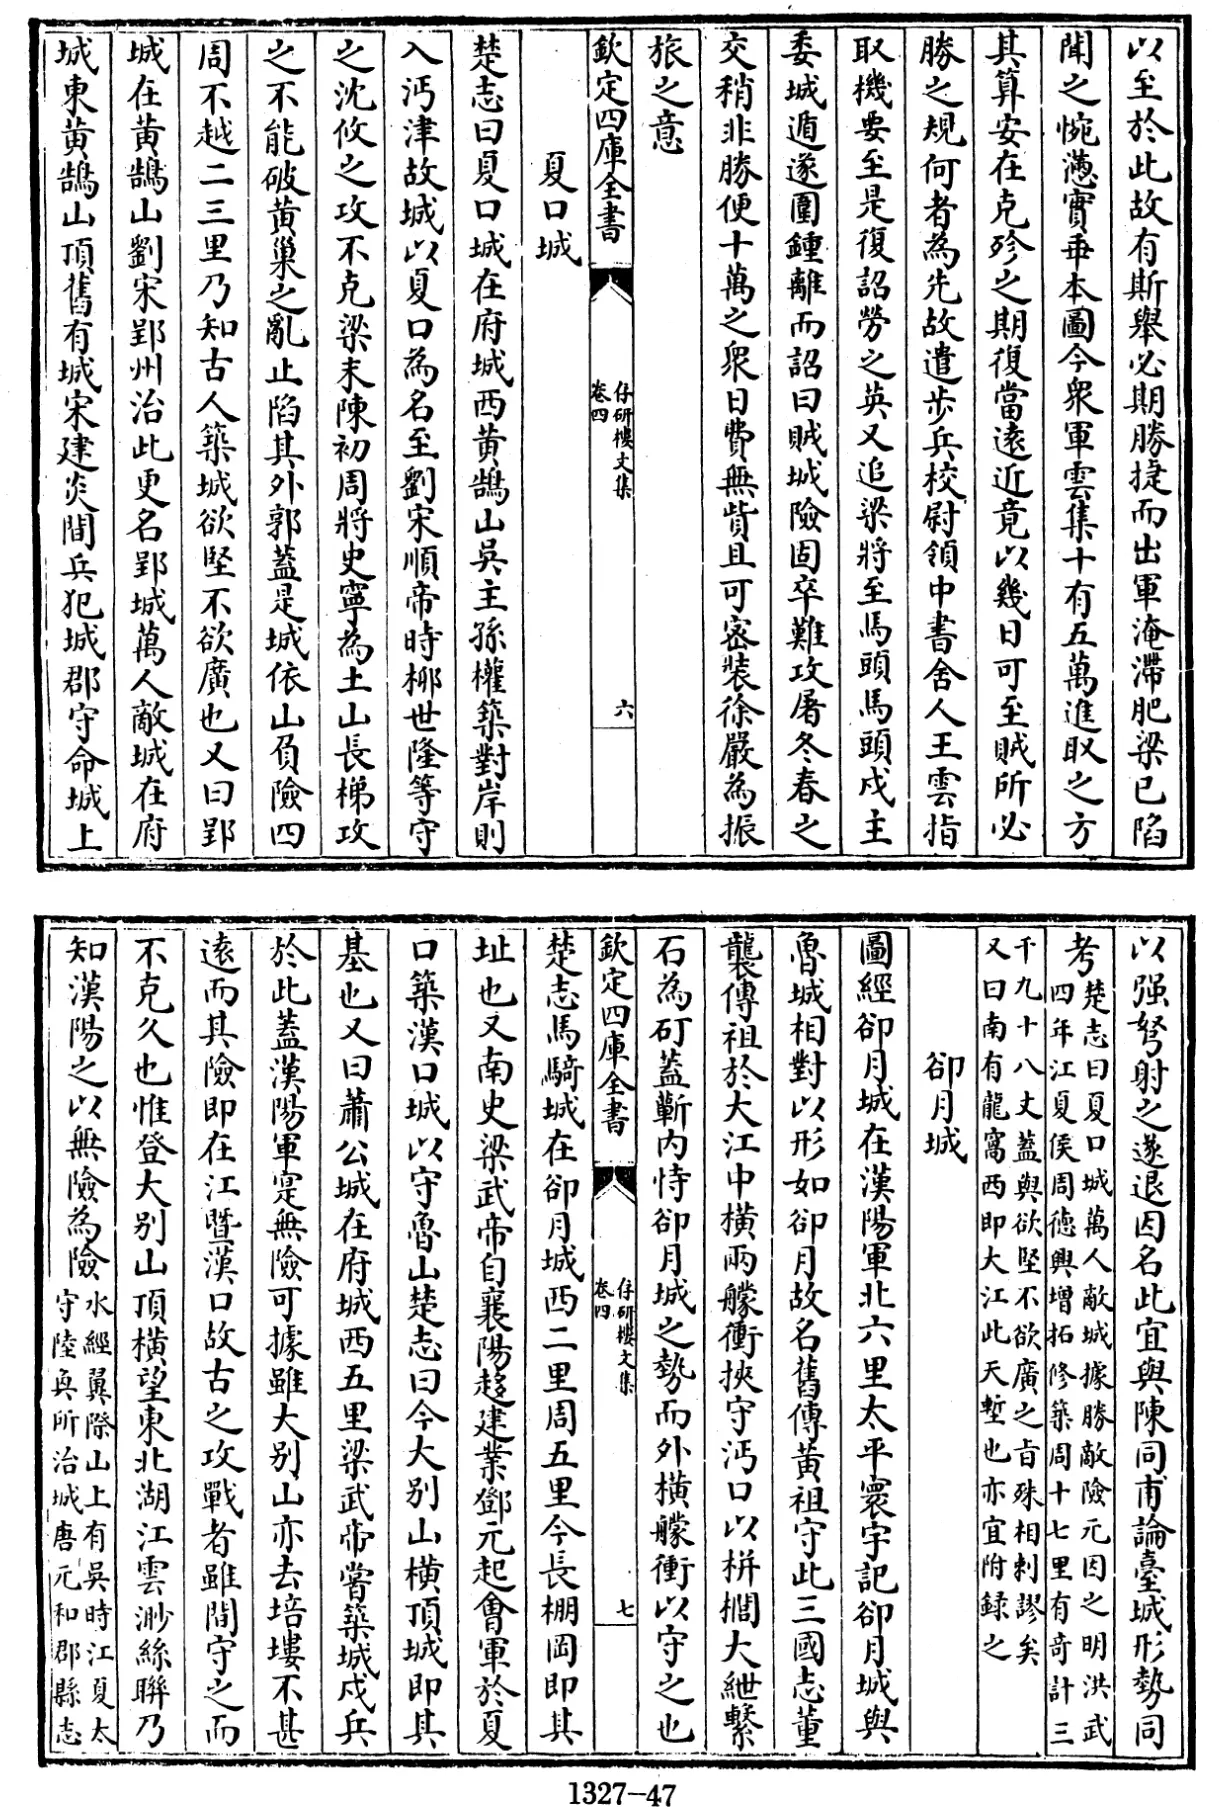 以至於此故有斯舉必期勝捷而出軍淹滯肥梁已陷
聞之惋懣實乖本圖今衆軍雲集十有五萬進取之方
其算安在克殄之期復當遠近竟以幾日可至賊所必
勝之規何者為先故遣步兵校尉領中書舍人王雲指
取機要至是復詔勞之英又追梁將至馬頭馬頭戍主
委城遁遂圍鍾離而詔曰賊城險固卒難攻屠冬春之
交稍非勝便十萬之衆日費無貲且可密裝徐嚴為振
旅之意
欽定四庫全書
仔研樓文集
卷四
六
夏口城
楚志曰夏口城在府城西黄鵠山吳主孫權築對岸則
入沔津故城以夏口為名至劉宋順帝時栁世隆等守
之沈攸之攻不克梁末陳初周將史寧為土山長梯攻
之不能破黄巢之亂止陷其外郭蓋是城依山負險四
周不越二三里乃知古人築城欲堅不欲廣也又曰郢
城在黄鵠山劉宋郢州治此更名郢城萬人敵城在府
城東黄鵠山頂舊有城宋建炎間兵犯城郡守命城上
以强弩射之遂退因名此宜與陳同甫論臺城形勢同
考楚志曰夏口城萬人敵城據勝敵險元因之明洪武
四年江夏侯周德興增拓修築周十七里有奇計三
千九十八丈蓋與欲堅不欲廣之旨殊相刺謬矣
又曰南有龍窩西即大江此天塹也亦宜附録之
卻月城
圖經卻月城在漢陽軍北六里太平寰宇記卻月城與
魯城相對以形如卻月故名舊傳黄祖守此三國志董
襲傳祖於大江中橫兩艨衝挾守沔口以栟櫚大紲繫
石為矴蓋蘄内恃卻月城之勢而外橫艨衝以守之也
欽定四庫全書
仔研樓文集
卷四
七
楚志馬騎城在卻月城西二里周五里今長棚岡即其
址也又南史梁武帝自襄陽趍建業鄧元起會軍於夏
口築漢口城以守魯山楚志曰今大别山橫頂城即其
基也又曰蕭公城在府城西五里梁武帝嘗築城戍兵
於此蓋漢陽軍寔無險可據雖大别山亦去培塿不甚
遠而其險即在江暨漢口故古之攻戰者雖間守之而
不克久也惟登大别山頂橫望東北湖江雲渺絲聨乃
知漢陽之以無險為險水經翼際山上有吳時江夏太
守陸奐所治城唐元和郡縣志
1327-47